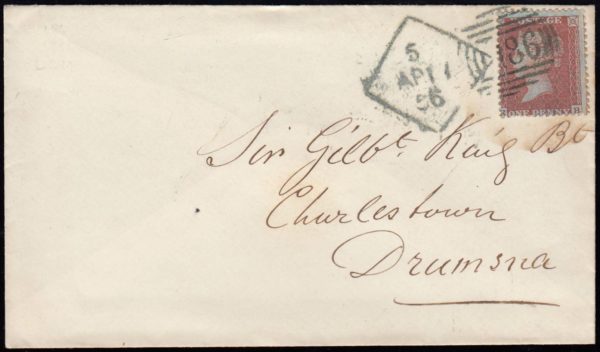 5
AP 11
56
POSTAGE
186
ONE PENNY
Sir Gilbt. King Bt
Charlestown
Drumsna